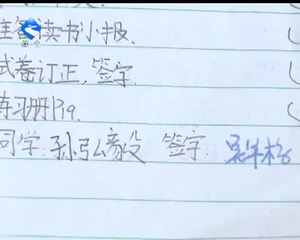 准备读书小报.
试卷订正,签字.
练习册P39.
同学:孙弘毅 签字: